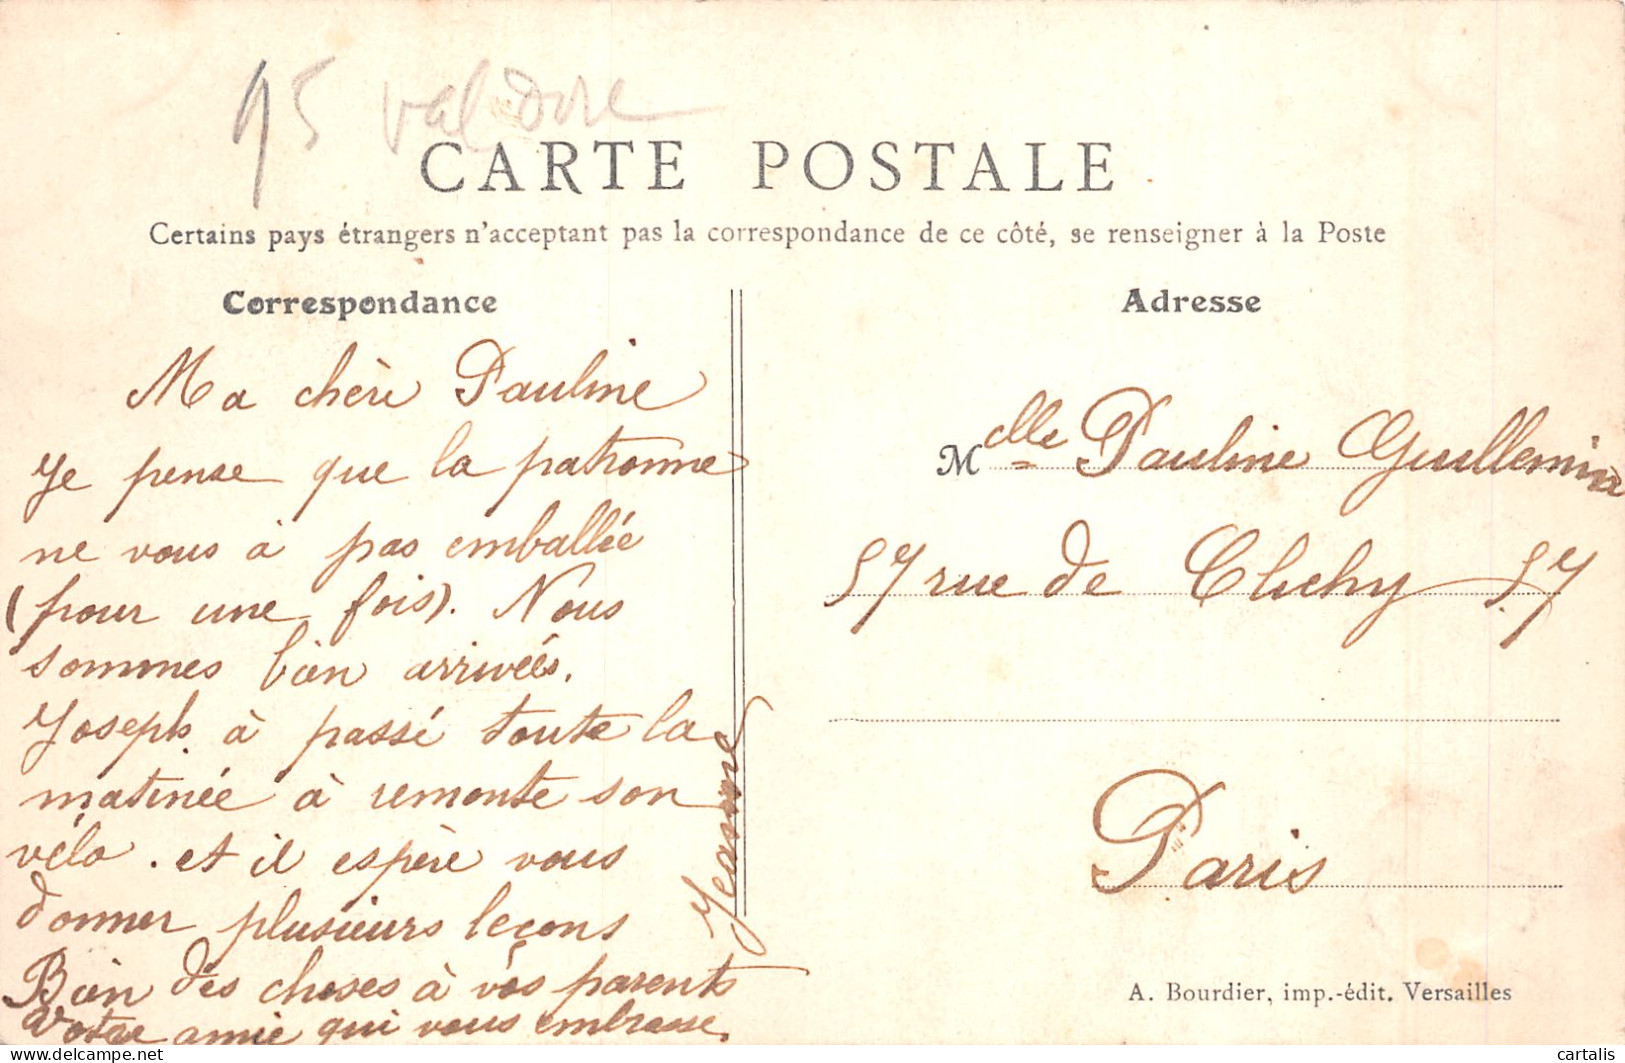 95 val dore
CARTE POSTALE
Certains pays étrangers n'acceptant pas la correspondance de ce côté, se renseigner à la Poste
Correspondance
Ma chère Pauline
Je pense que la patronne
ne vous à pas emballée
(pour une fois). Nous
sommes bien arrivées.
Joseph à passé toute la
matinée à remonte son
vélo. et il espère vous
donner plusieurs leçons
Bien des choses à vos parents
Votre amie qui vous embrasse.
Jeanne
Adresse
Melle Pauline Guillemin
57 rue de Clichy 57
Paris
A. Bourdier, imp.-édit. Versailles
cartalis
delcampe.net